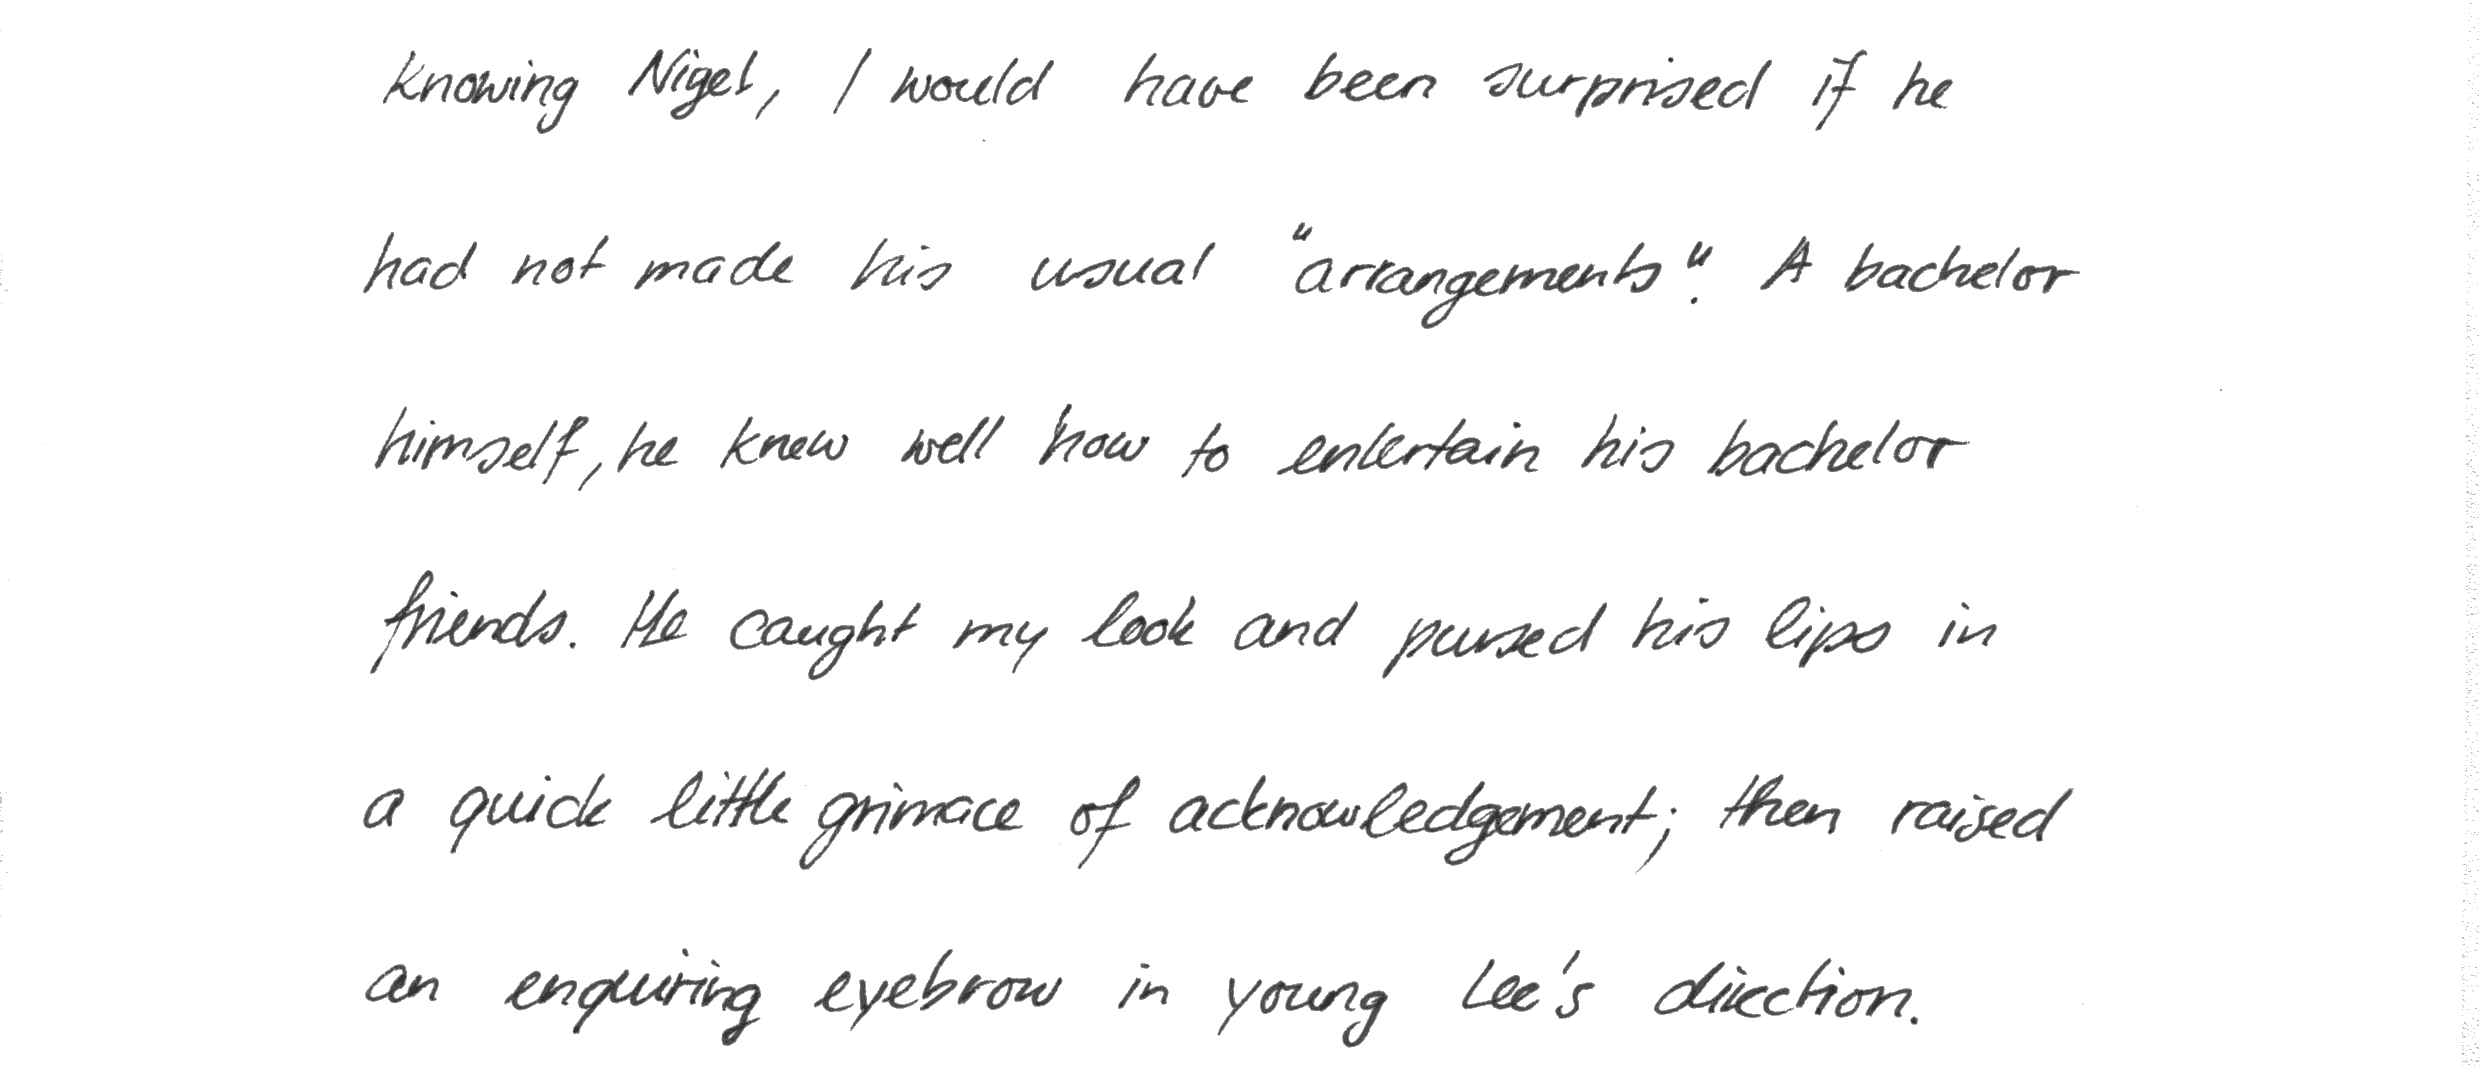 Knowing Nigel, I would have been surprised if he
had not made his usual "arrangements". A bachelor
himself, he knew well how to entertain his bachelor
friends. He caught my look and pursed his lips in
a quick little grimace of acknowledgement; then raised
an enquiring eyebrow in young Lee's direction.